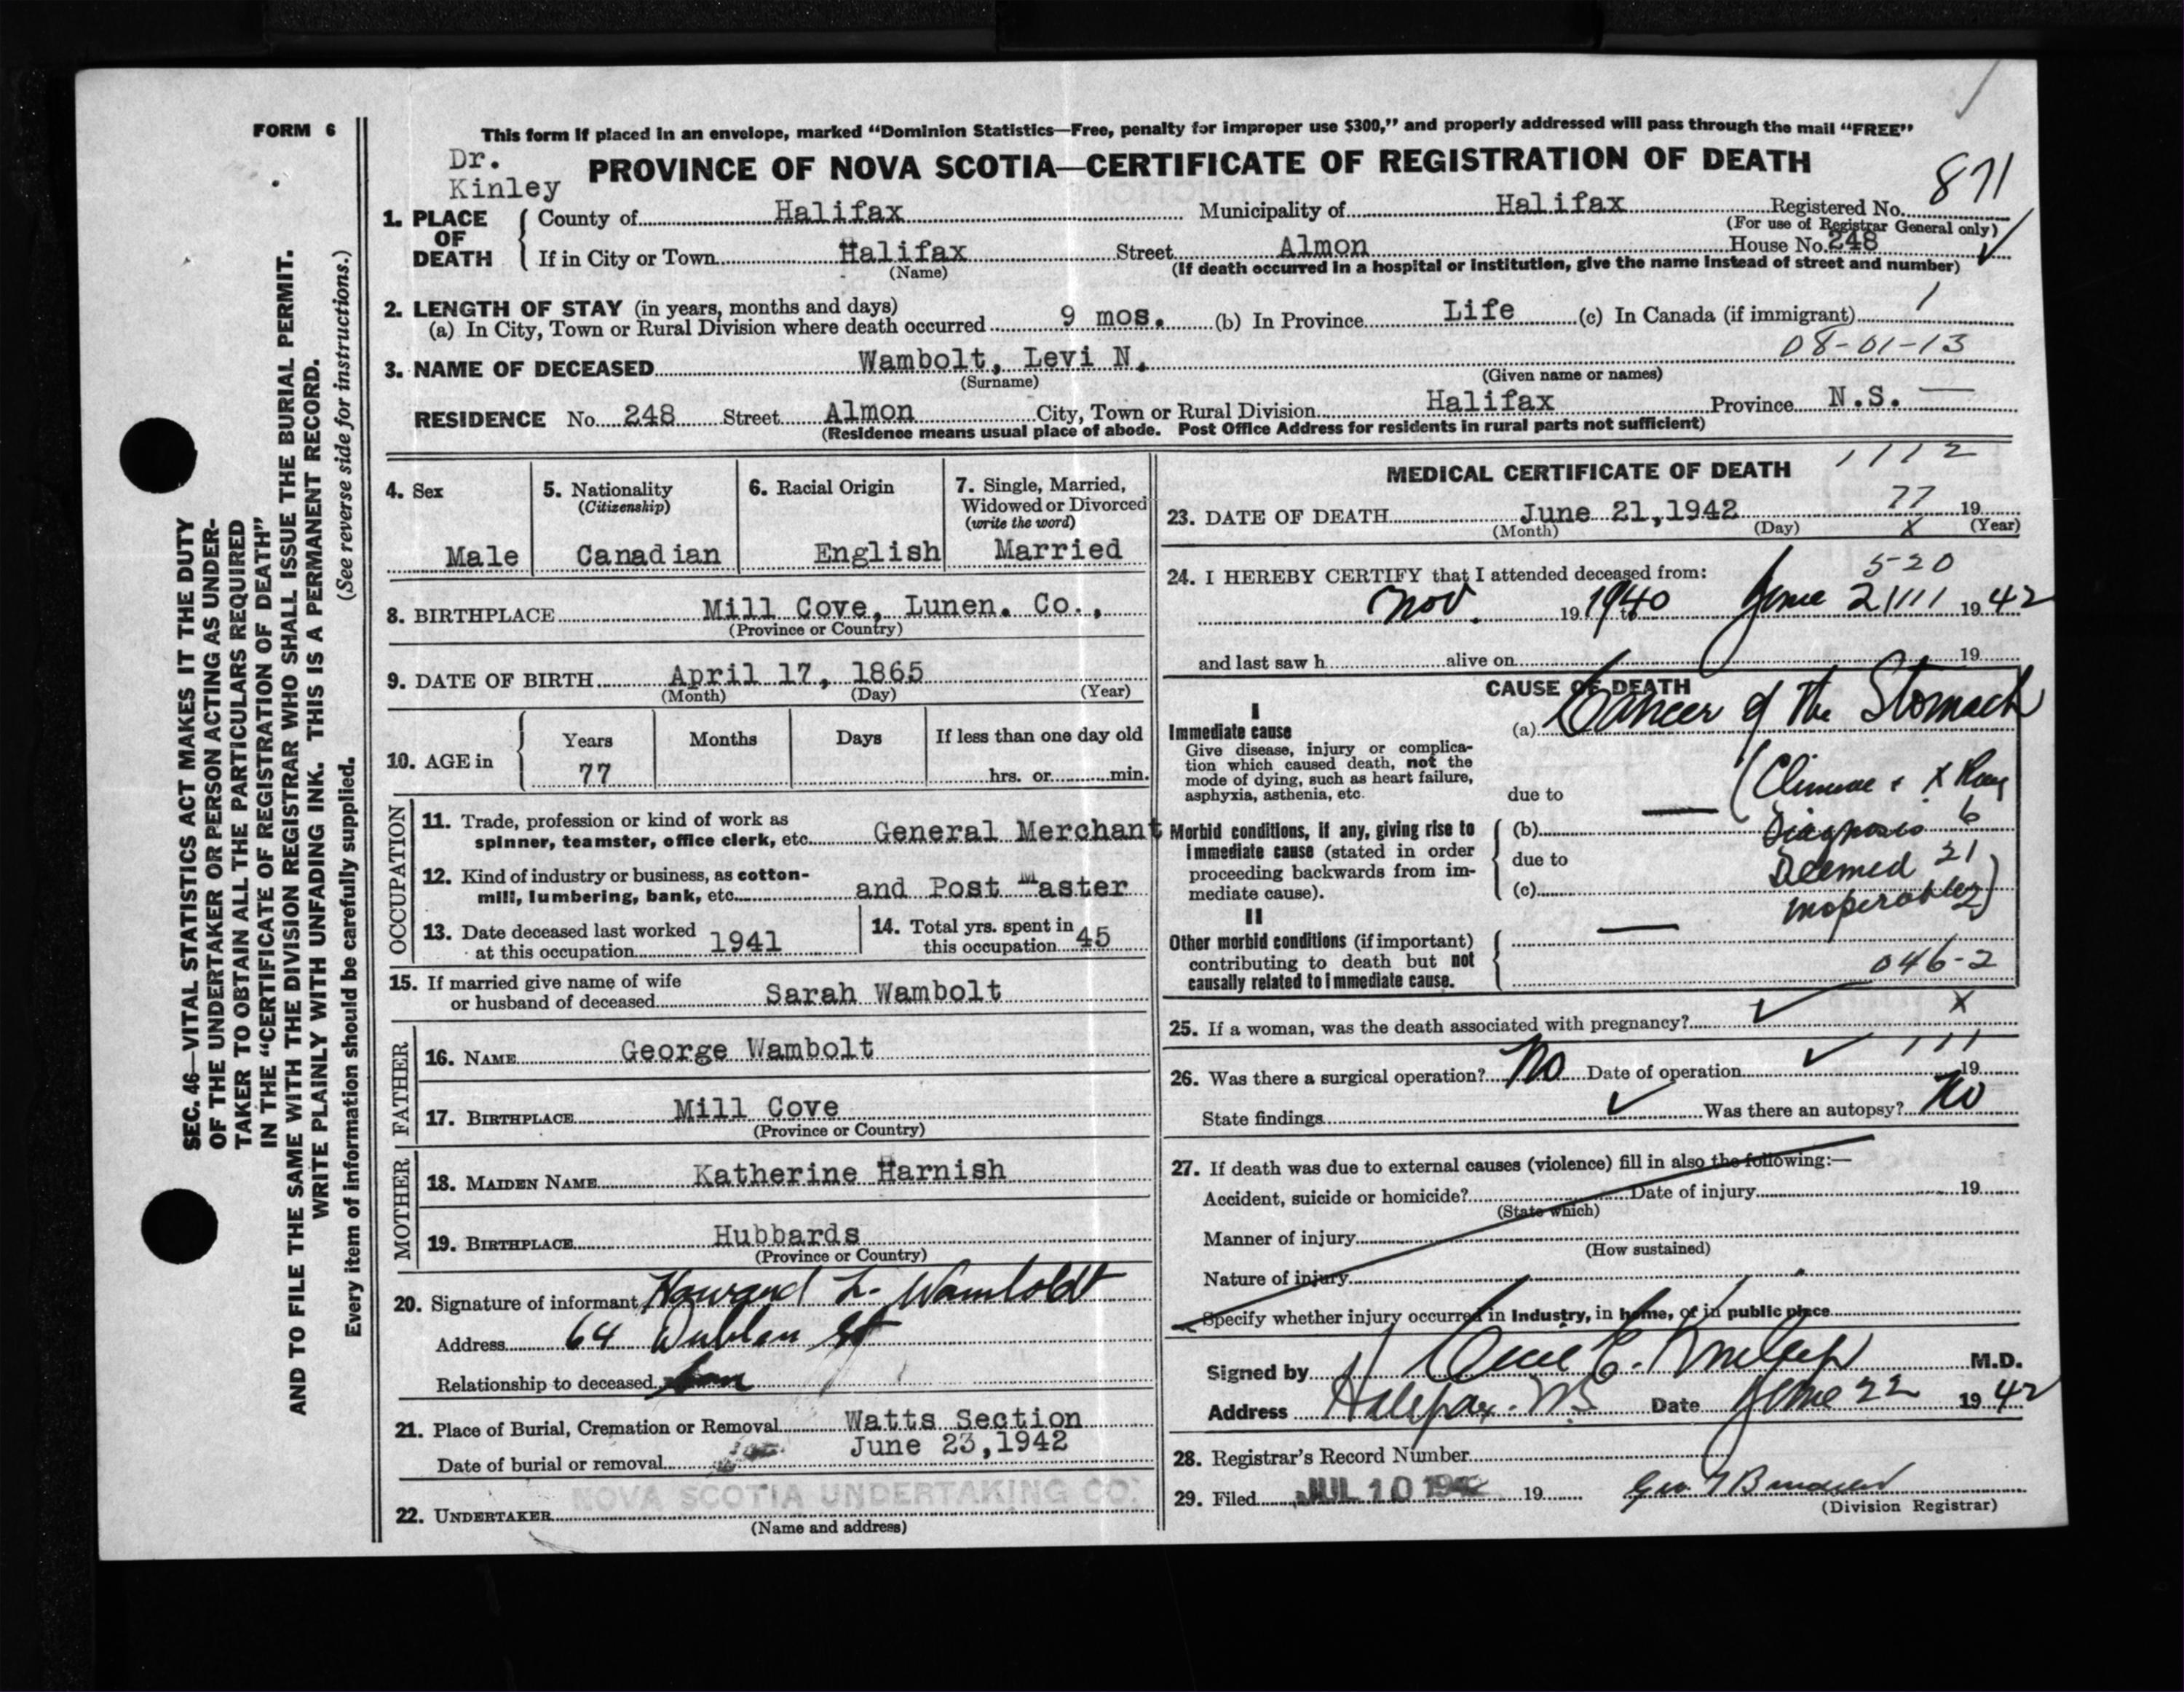 FORM 6
This form if placed in an envelope, marked “Dominion Statistics—Free, penalty for improper use $300,” and properly addressed will pass through the mail “FREE”
Dr.
Kinley
PROVINCE OF NOVA SCOTIA—CERTIFICATE OF REGISTRATION OF DEATH
871
1. PLACE OF DEATH
County of Halifax Municipality of Halifax Registered No.
(For use of Registrar General only)
If in City or Town Halifax Street Almon House No. 248
(Name) (If death occurred in a hospital or institution, give the name instead of street and number)
2. LENGTH OF STAY (in years, months and days)
(a) In City, Town or Rural Division where death occurred 9 mos. (b) In Province Life (c) In Canada (if immigrant) 1
08-01-13
3. NAME OF DECEASED Wambolt, Levi N.
(Surname) (Given name or names)
RESIDENCE No. 248 Street Almon City, Town or Rural Division Halifax Province N.S. —
(Residence means usual place of abode. Post Office Address for residents in rural parts not sufficient)
4. Sex
Male
5. Nationality
(Citizenship)
Canadian
6. Racial Origin
English
7. Single, Married,
Widowed or Divorced
(write the word)
Married
8. BIRTHPLACE Mill Cove, Lunen. Co.,
(Province or Country)
9. DATE OF BIRTH April 17, 1865
(Month) (Day) (Year)
10. AGE in
Years Months Days If less than one day old
77 hrs. or min.
OCCUPATION
11. Trade, profession or kind of work as
spinner, teamster, office clerk, etc. General Merchant
12. Kind of industry or business, as cotton-
mill, lumbering, bank, etc. and Post Master
13. Date deceased last worked
at this occupation 1941
14. Total yrs. spent in
this occupation 45
15. If married give name of wife
or husband of deceased Sarah Wambolt
FATHER
16. NAME George Wambolt
17. BIRTHPLACE Mill Cove
(Province or Country)
MOTHER
18. MAIDEN NAME Katherine Harnish
19. BIRTHPLACE Hubbards
(Province or Country)
20. Signature of informant Howard L. Wamboldt
Address 64 Dublan St
Relationship to deceased Son
21. Place of Burial, Cremation or Removal Watts Section
June 23, 1942
Date of burial or removal
NOVA SCOTIA UNDERTAKING CO.
22. UNDERTAKER
(Name and address)
MEDICAL CERTIFICATE OF DEATH 1112
77
23. DATE OF DEATH June 21, 1942 19
(Month) (Day) X (Year)
24. I HEREBY CERTIFY that I attended deceased from: 5-20
Nov. 19 1940 to June 21 111 19 42
and last saw h alive on 19
CAUSE OF DEATH
I
Immediate cause
Give disease, injury or complica-
tion which caused death, not the
mode of dying, such as heart failure,
asphyxia, asthenia, etc.
(a) Cancer of the Stomach
due to — (Clinical & X Ray
Morbid conditions, if any, giving rise to
immediate cause (stated in order
proceeding backwards from im-
mediate cause).
(b) Diagnosis 6
due to Deemed 21
(c) inoperable) 2
II
Other morbid conditions (if important)
contributing to death but not
causally related to immediate cause.
—
046-2
25. If a woman, was the death associated with pregnancy? ✓ X
111
26. Was there a surgical operation? No Date of operation ✓ 19
State findings ✓ Was there an autopsy? No
27. If death was due to external causes (violence) fill in also the following:—
Accident, suicide or homicide? Date of injury 19
(State which)
Manner of injury
(How sustained)
Nature of injury
Specify whether injury occurred in industry, in home, or in public place
Signed by M.D.
Address Halifax. N.S Date June 22 19 42
28. Registrar's Record Number
29. Filed JUL 10 1942 19
(Division Registrar)
SEC. 46—VITAL STATISTICS ACT MAKES IT THE DUTY
OF THE UNDERTAKER OR PERSON ACTING AS UNDER-
TAKER TO OBTAIN ALL THE PARTICULARS REQUIRED
IN THE “CERTIFICATE OF REGISTRATION OF DEATH”
AND TO FILE THE SAME WITH THE DIVISION REGISTRAR WHO SHALL ISSUE THE BURIAL PERMIT.
WRITE PLAINLY WITH UNFADING INK. THIS IS A PERMANENT RECORD.
Every item of information should be carefully supplied. (See reverse side for instructions.)